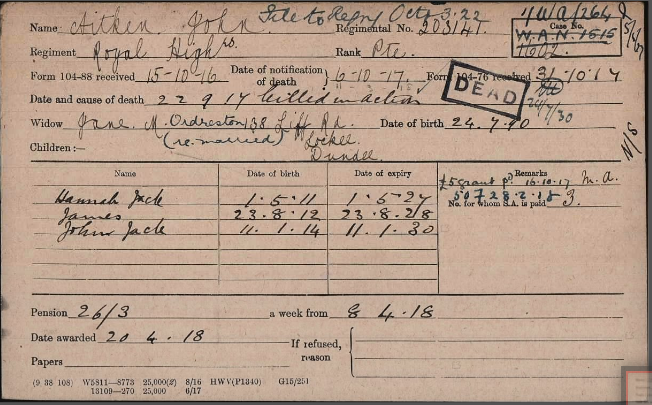 File to Regry Oct. 3.22
4WA/264
Name Aitken. John Regimental No. 203141.
Case No.
W.A.N. 1515
1602.
Regiment Royal Highrs. Rank Pte.
Form 104-88 received 15-10-16 Date of notification of death 6-10-17. Form 104-76 received 31.10.17
DEAD
Date and cause of death 22 9 17 Killed in action
24/7/30
Widow Jane. M. 138 Liff Rd. Date of birth 24.7.90
(re-married) Lochee
Children:— Dundee.
Name Date of birth Date of expiry Remarks
£5 grant pd. 16.10.17 M.A.
Hannah Jack 1.5.11 1.5.27
50728.2.18
No. for whom S.A. is paid 3.
James 23.8.12 23.8.28
John Jack 11.1.14 11.1.30
Pension 26/3 a week from 8 4.18
Date awarded 20 4.18 If refused, reason
Papers
(9 38 108) W5811—8773 25,000(2) 8/16 HWV(P1340) G15/251
13109—270 25,000 6/17